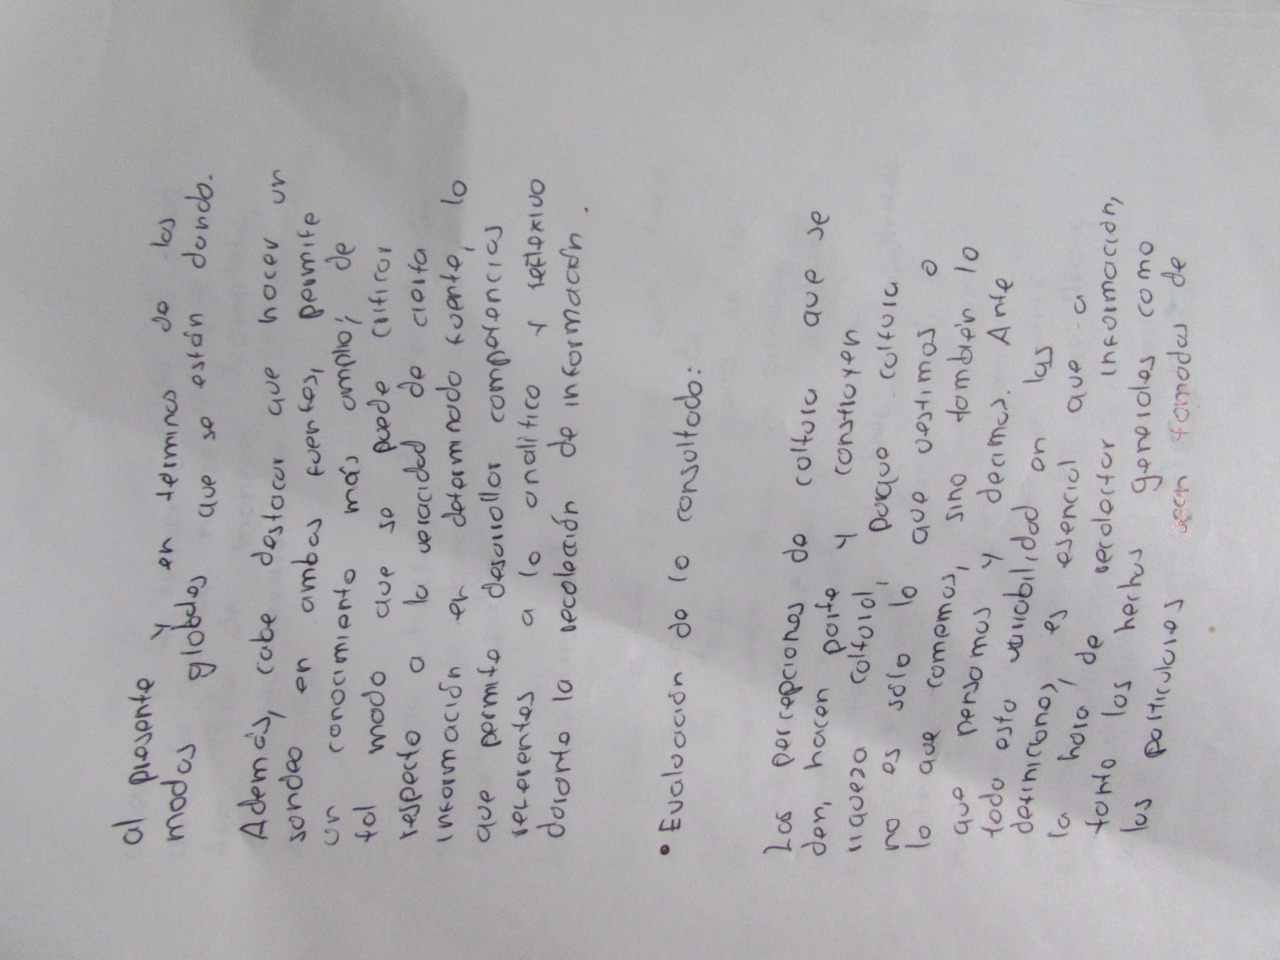 al presente y en terminos de las
modas globales que se están dando.
Además, cabe destacar que hacer un
sondeo en ambas fuentes, permite
un conocimiento más amplio, de
tal modo que se puede criticar
respecto a la veracidad de cierta
información en determinada fuente, lo
que permite desarrollar competencias
referentes a lo analítico y reflexivo
durante la recolección de información.
• Evaluación de lo consultado:
Las percepciones de cultura que se
den, hacen parte y construyen
riqueza cultural, porque cultura
no es sólo lo que vestimos o
lo que comemos, sino también lo
que pensamos y decimos. Ante
toda esta variabilidad en las
definiciones, es esencial que a
la hora de recolectar información,
tanto los hechos generales como
los particulares sean tomados de